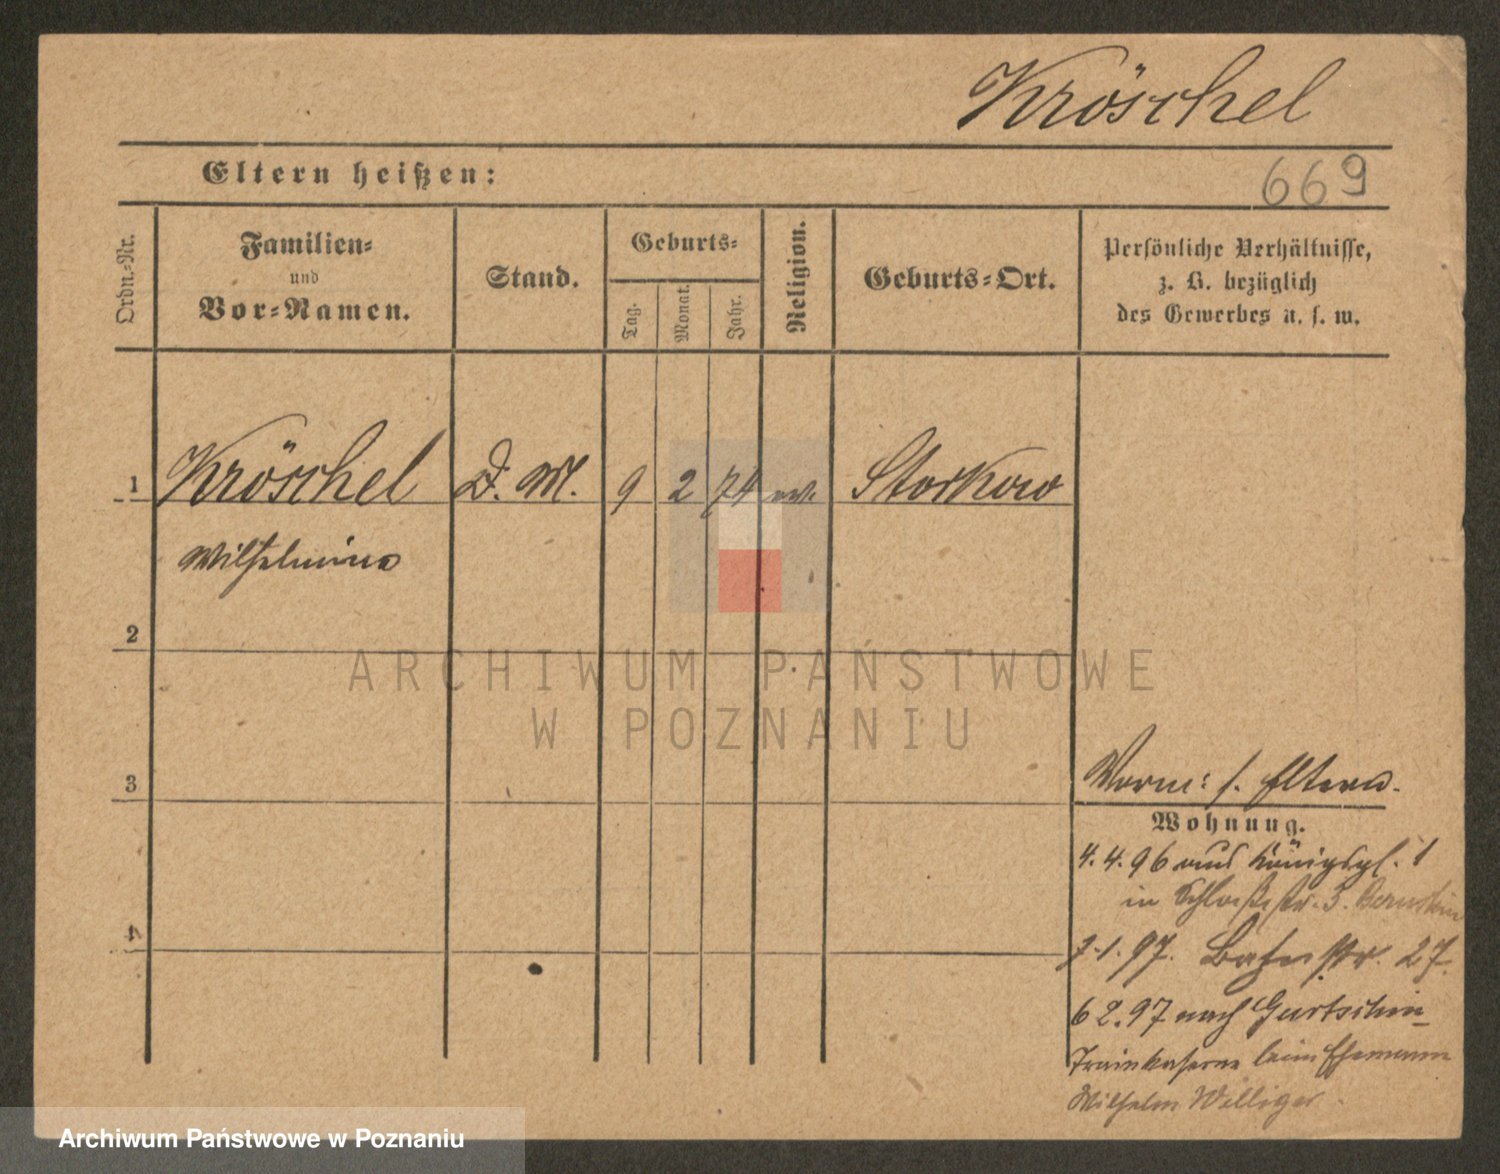 Kröschel
Eltern heißen:
669
Ordn.-Nr.
Familien-
und
Vor-Namen.
Stand.
Geburts-
Tag.
Monat.
Jahr.
Religion.
Geburts-Ort.
Persönliche Verhältnisse,
z. B. bezüglich
des Gewerbes u. s. w.
1 Kröschel D. M. 9 2 74 ev. Storkow
Wilhelmine
2
3
4
ARCHIWUM PAŃSTWOWE
W POZNANIU
Vorm: s. Eltern.
Wohnung.
4. 4. 96 aus Königspl. 1
in Schloßstr. 3. Bernstein
7.1.97. Bahnstr. 27.
6 2. 97 nach Gurtschin
Trainkaserne beim Ehemann
Wilhelm Williger.
Archiwum Państwowe w Poznaniu